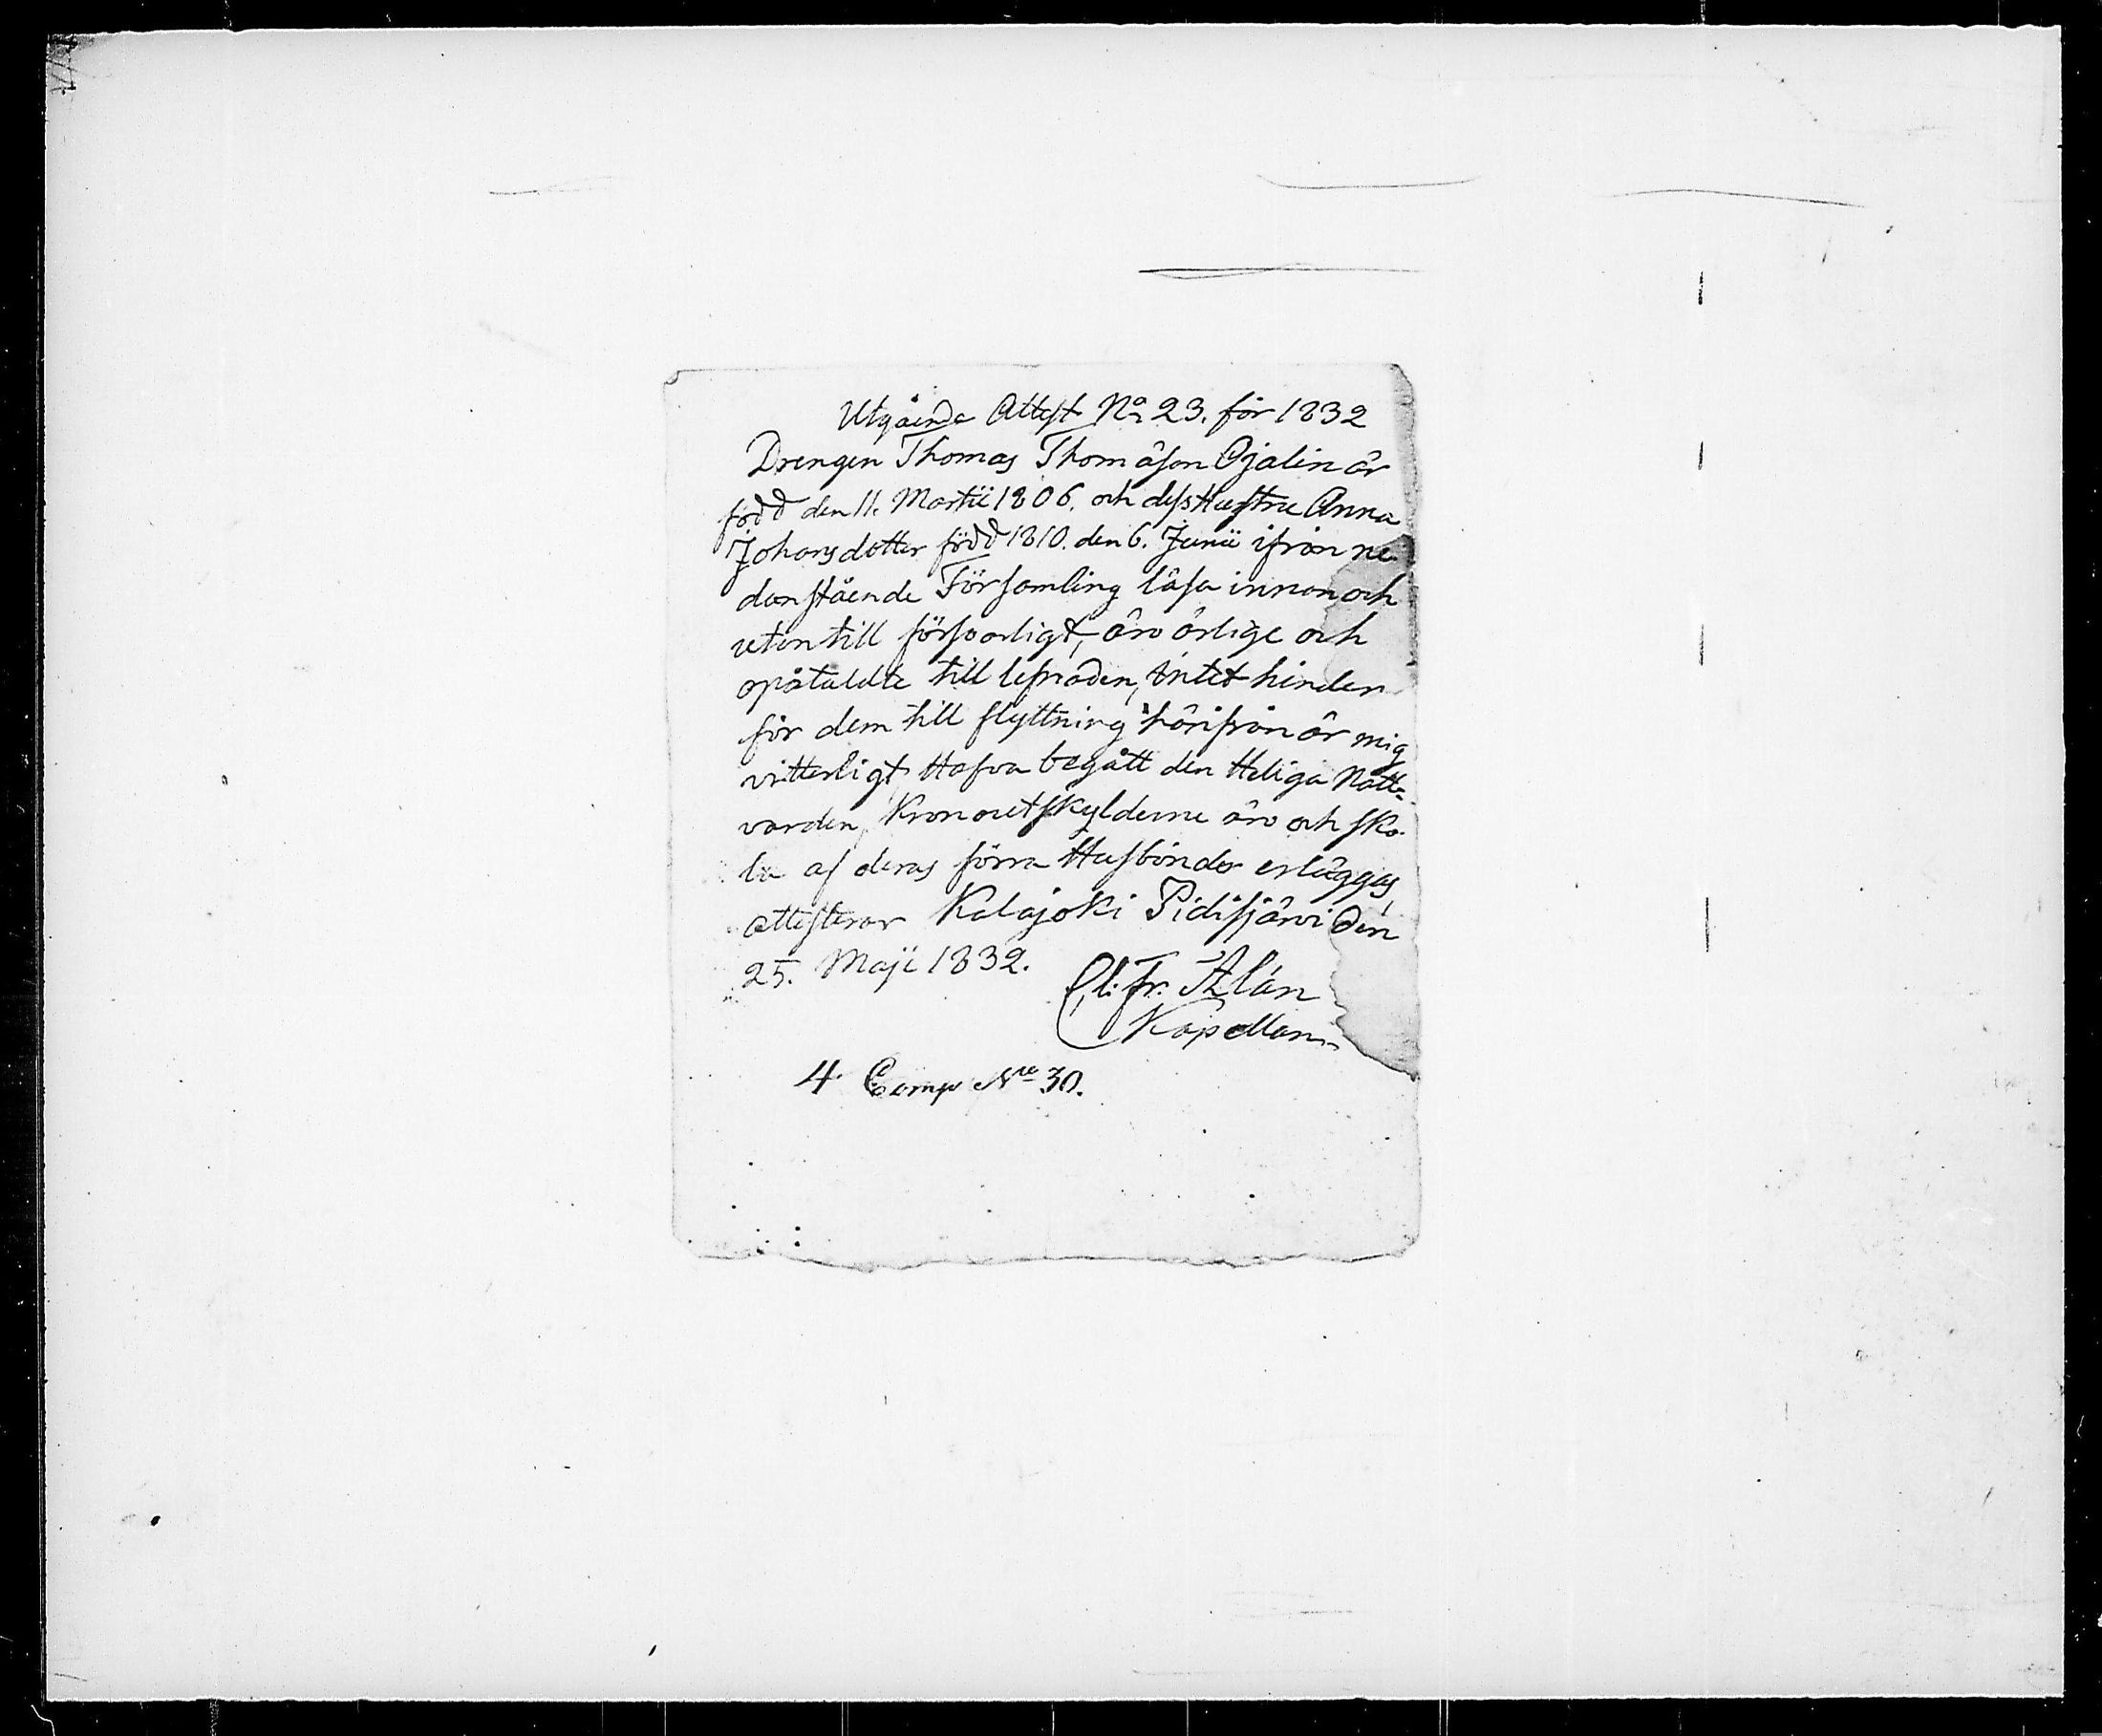 Utgående Attest No 23. för 1832
Drengen Thomas Thomåson Ojalin är
född den 11. Martii 1806. och dess Hustru Anna
Johansdotter född 1810. den 6. Junii ifrån ne-
danstående Församling läsa innan och
utan till försvarligt, äro ärlige och
opåtaldte till lefnaden, Intet hinder
för dem till flyttning härifrån är mig
vitterligt, Hafva begått den Heliga Natt-
varden, Kronoutskylderne äro och ska-
la af deras förra Husbönder erläggas,
attesterar Kalajoki Pidisjärvi den
25. Maji 1832.
Fr. Alán
Kapellan
4 Comp No 30.